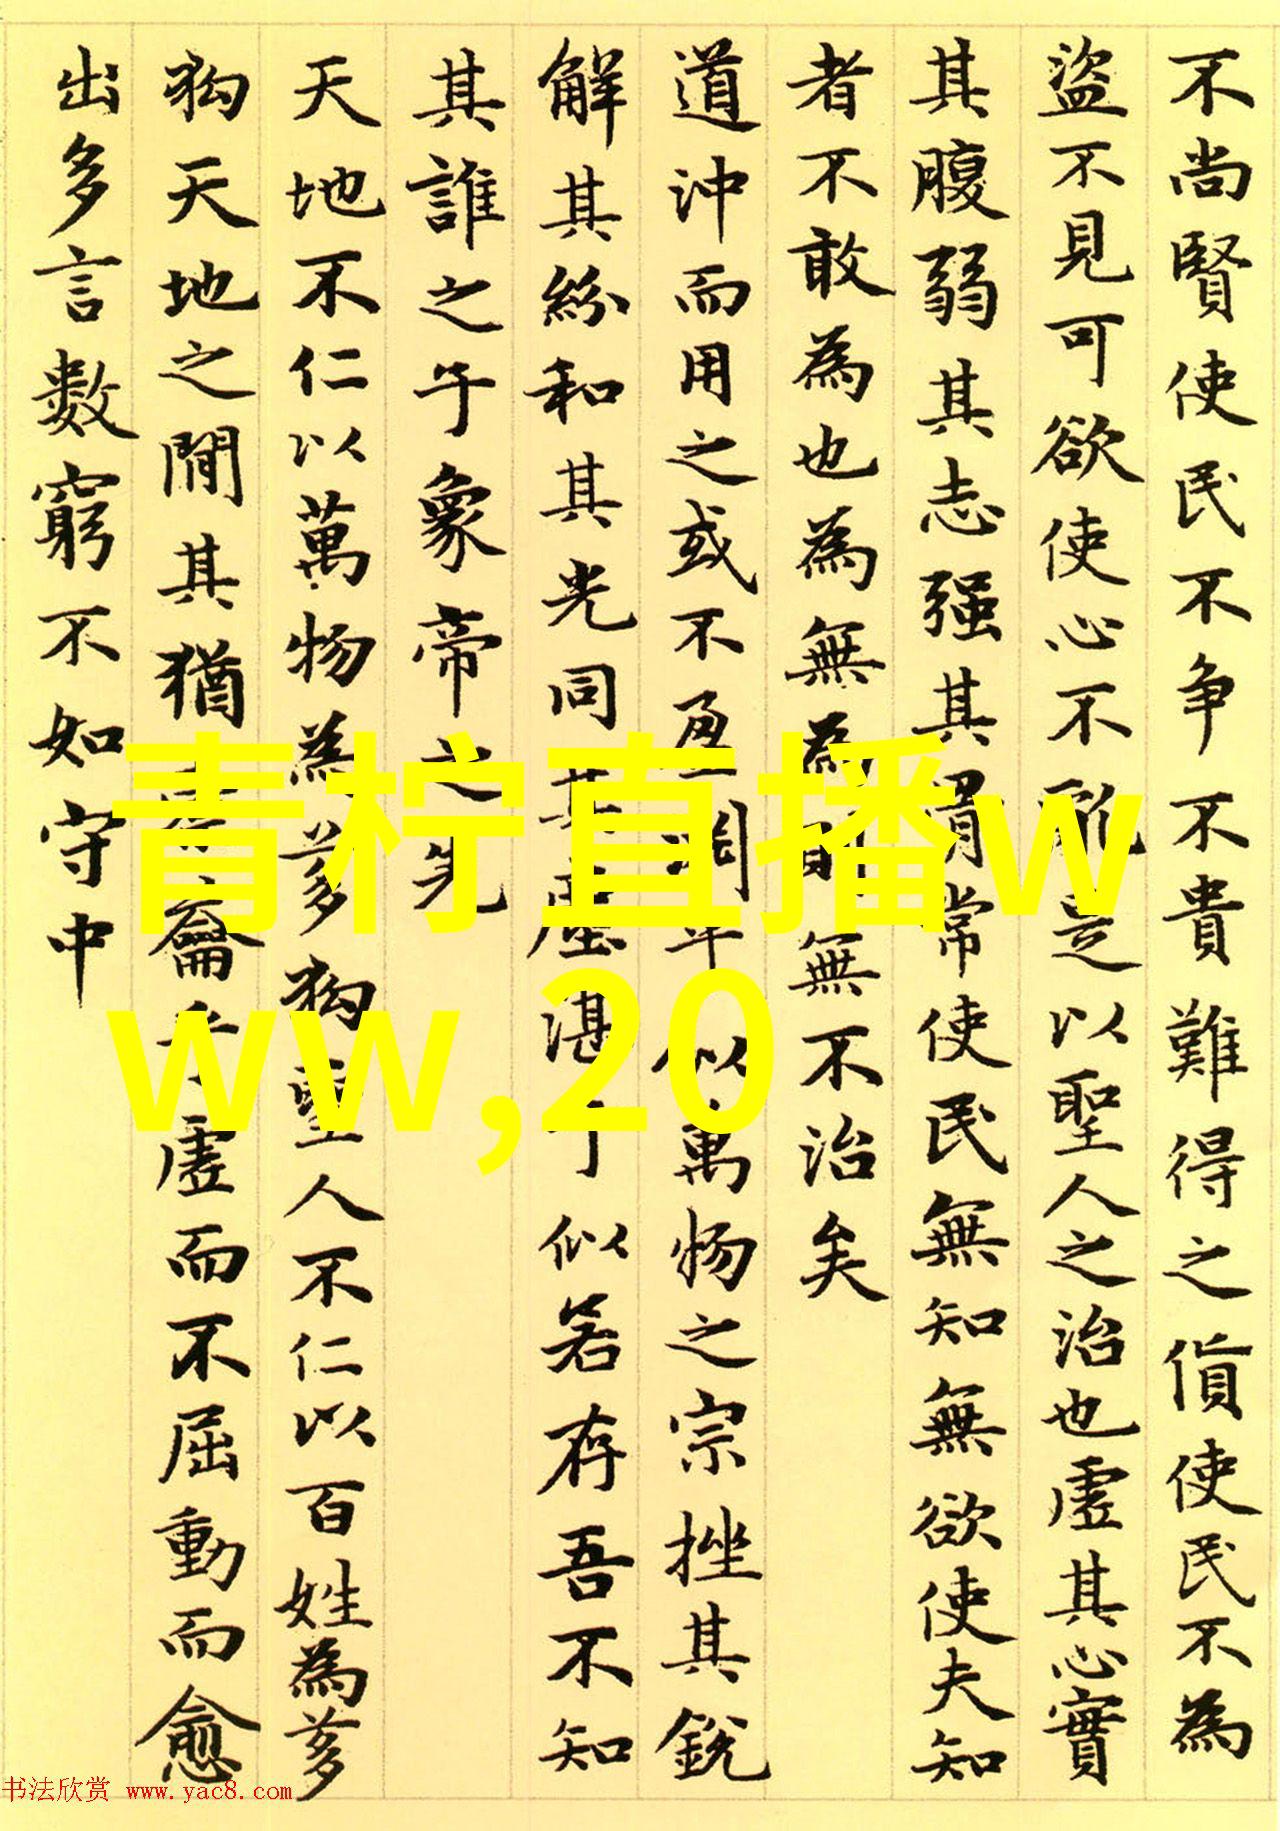 不尚賢使民不争不貴難得之貨使民不為
盜不見可欲使心不亂是以聖人之治也虛其心實
其腹弱其志强其骨常使民無知無欲使夫知
者不敢為也為無為則無不治矣
道沖而用之或不盈淵乎似萬物之宗挫其銳
解其紛和其光同其塵湛乎似若存吾不知
其誰之子象帝之先
天地不仁以萬物為芻狗聖人不仁以百姓為芻
狗天地之間其猶橐籥乎虛而不屈動而愈
出多言數窮不如守中
青柠直播w
ww,20
书法欣赏 www.yac8.com